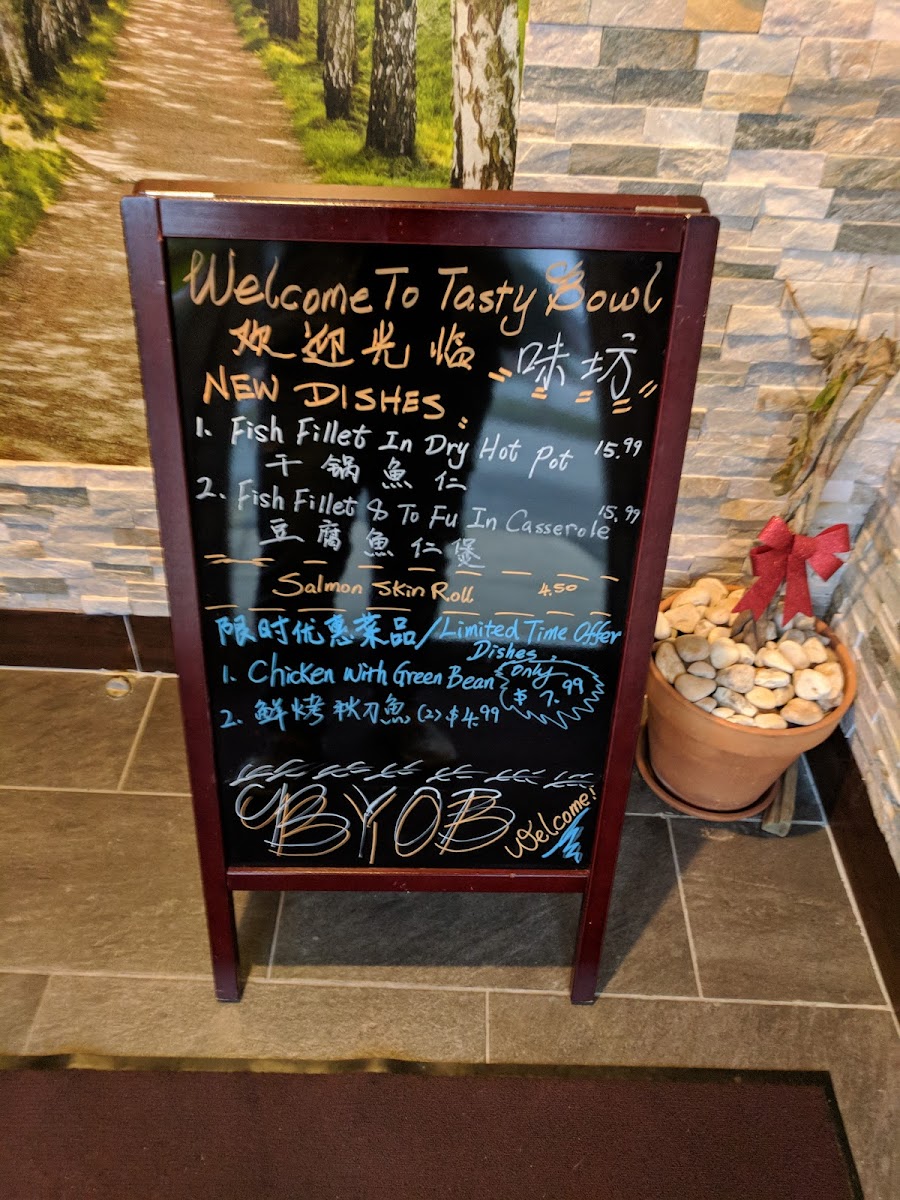 Welcome To Tasty Bowl
欢迎光临 "味坊"
NEW DISHES:
1. Fish Fillet In Dry Hot Pot 15.99
干锅魚仁
2. Fish Fillet & To Fu In Casserole 15.99
豆腐魚仁煲
Salmon Skin Roll 4.50
限时优惠菜品/Limited Time Offer
Dishes.
1. Chicken With Green Bean only $7.99
2. 鲜烤秋刀魚 (2) $4.99
BYOB Welcome!